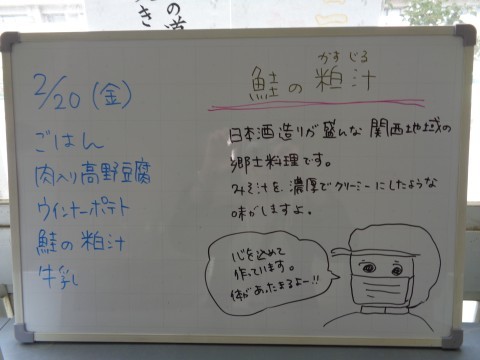 の道
き
2/20 (金)
ごはん
肉入り高野豆腐
ウインナーポテト
鮭の粕汁
牛乳
かすじる
鮭の粕汁
日本酒造りが盛んな関西地域の
郷土料理です。
みそ汁を、濃厚でクリーミーにしたような
味がしますよ。
心を込めて
作っています。
体があったまるよー!!